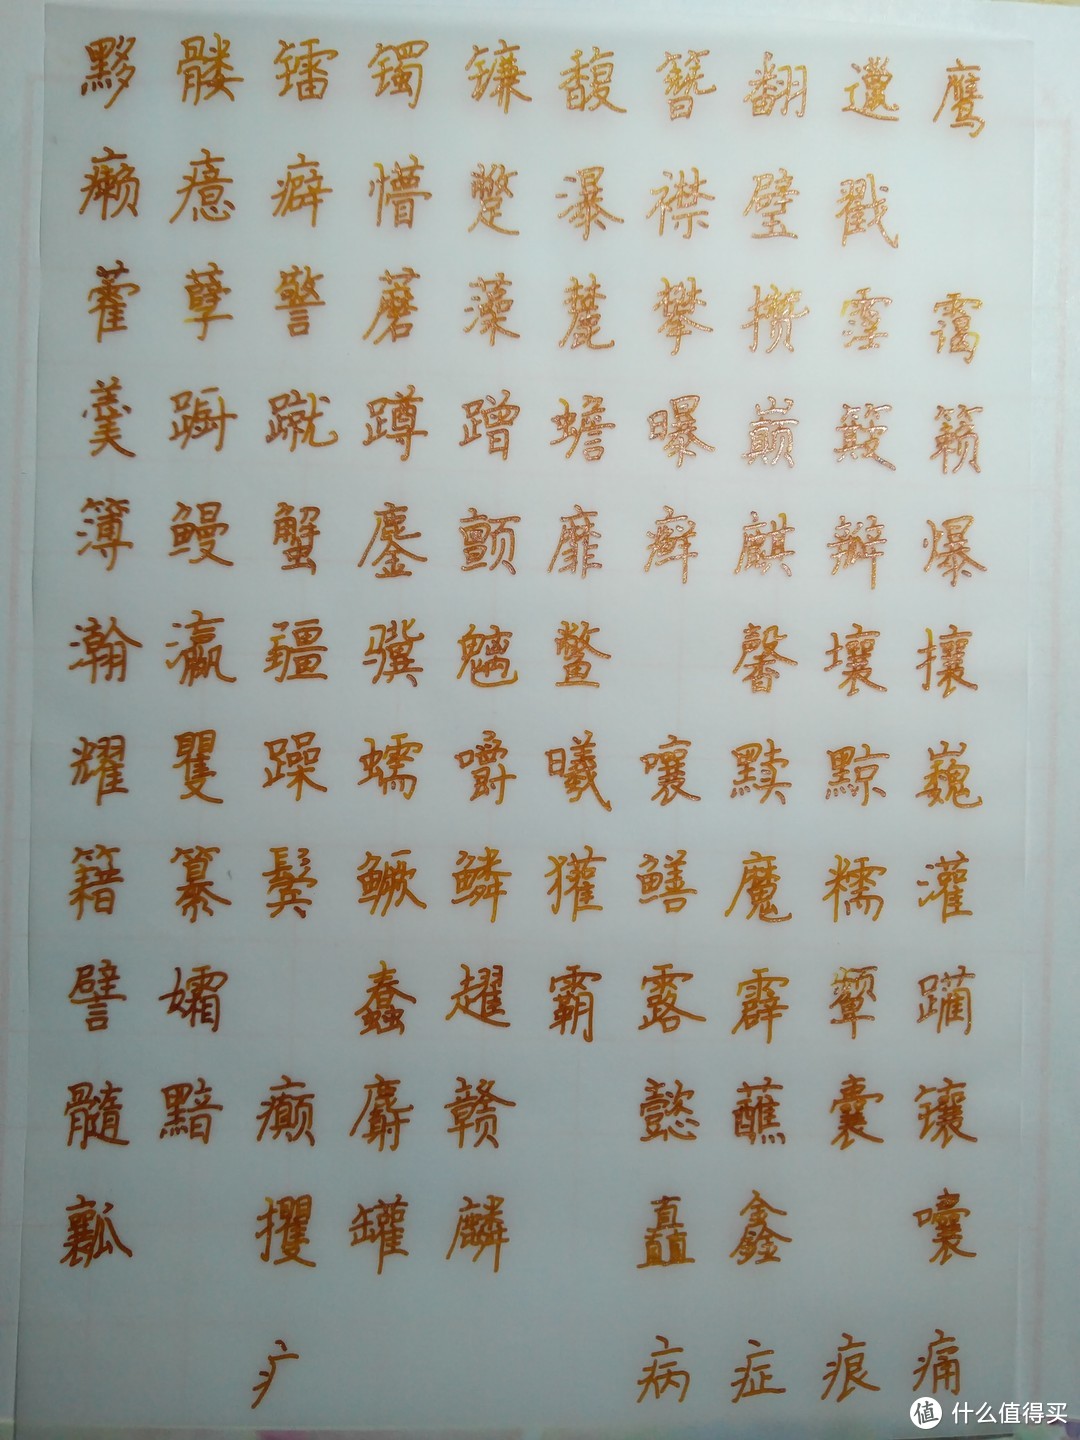 黟髅镭镯镰馥簪翻邋鹰
癞癔癖懵蹩瀑襟璧戳
藿孽警蘑藻麓攀攒霪霭
羹蹰蹴蹲蹭蟾曝巅簸籁
簿鳗蟹鏖颤靡癣麒瓣爆
瀚瀛疆骥魑鳖 馨壤攘
耀矍躁蠕嚼曦嚷黩黥巍
籍纂鬓鳜鳞獾鳝魔糯灌
譬孀 蠢趯霸露霹颦躏
髓黯癫麝赣 懿蘸囊镶
瓤 攫罐麟 矗鑫 囔
疒 病症痕痛
值 什么值得买